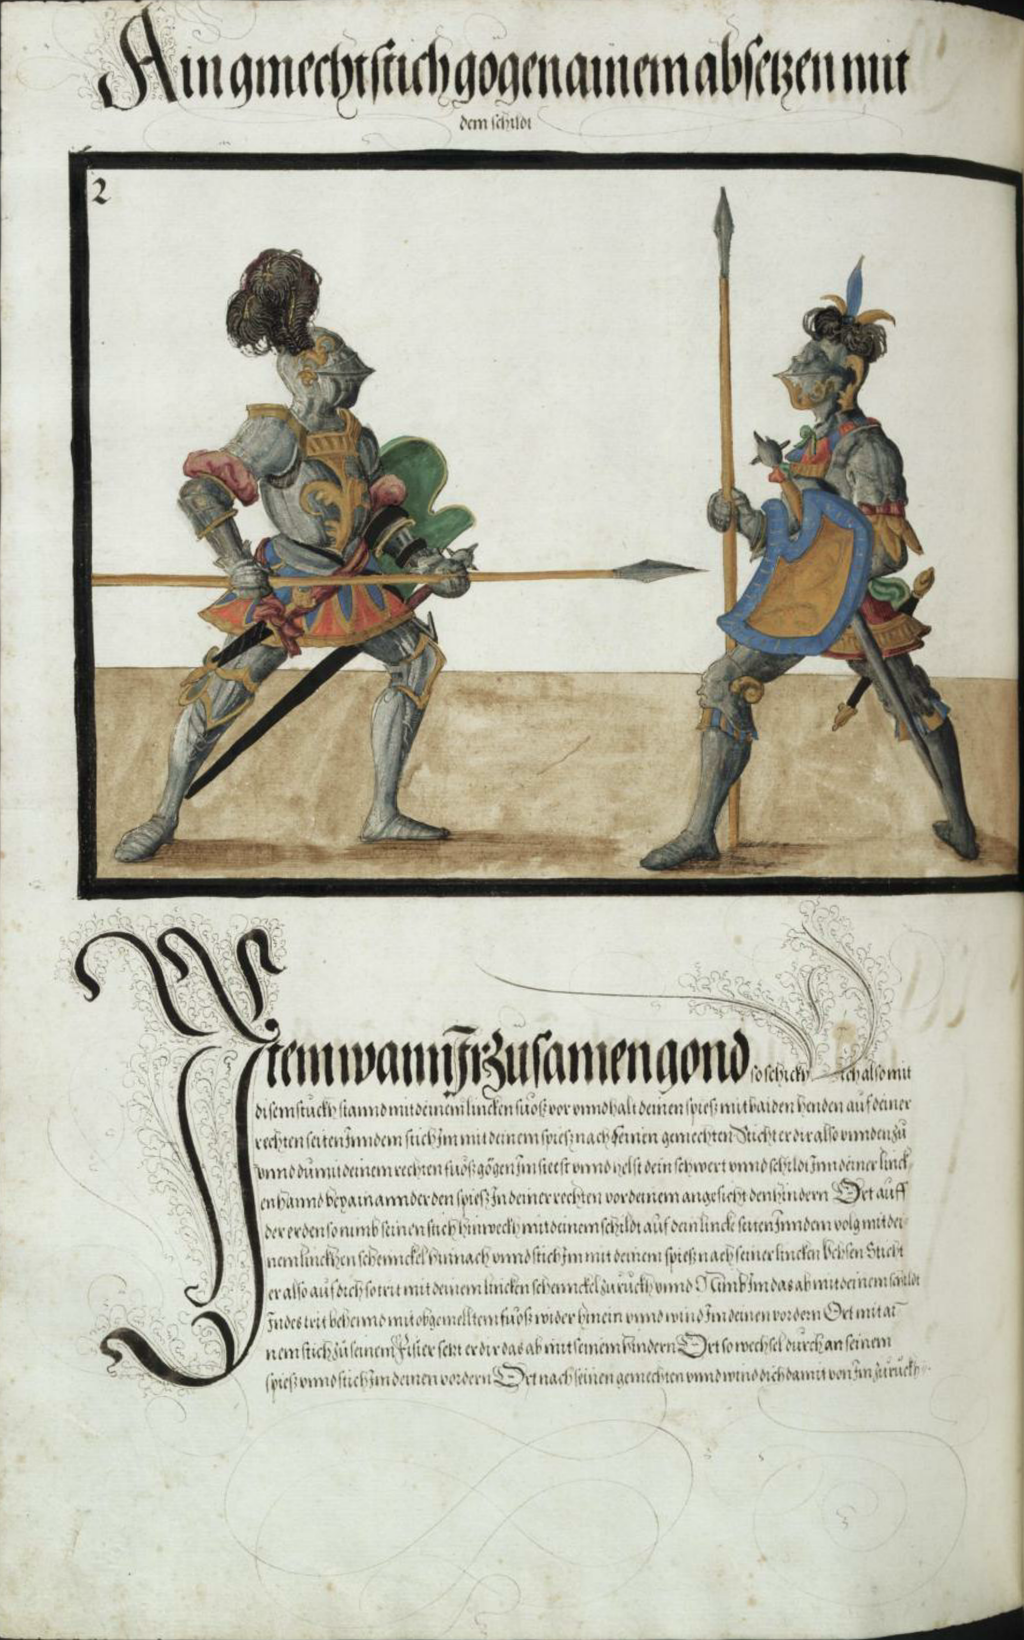 Ain gmechtstich gögen ainem absetzen mit
dem schildt
2
Item wann Ir zusamen gond so schickh dich also mit
disem stuckh stannd mit deinem lincken fuoß vor vnnd halt deinen spiesz mit baiden henden auf deiner
rechten seiten Inn dem stich Im mit deinem spiesz nach seinen gemechten Sticht er dir also vnnden zu
vnnd du mit deinem rechten fuoß gögen Im steest vnnd helst dein schwert vnnd schildt Inn deiner linck
en hannd bey ainannder den spiesz In deiner rechten vor deinem angesicht den hindern Ort auff
der erden so nimb seinen stich hinweckh mit deinem schildt auf dein lincke seiten Inn dem volg mit dei
nem linckhen schennckel hinnach vnnd stich Im mit deinem spiesz nach seiner lincken Vchsen Sticht
er also auf dich so trit mit deinem lincken schennckel zuruckh vnnd Nimb Im das ab mit deinem schildt
Indes trit behennd mit obgemelltem fuoß wider hinein vnnd wind Im deinen vordern Ort mit ai
nem stich zu seinem Fisier setzt er dir das ab mit seinem hindern Ort so wechsel durch an seinem
spiesz vnnd stich Im deinen vordern Ort nach seinen gemechten vnnd wind dich damit von Im zuruckh